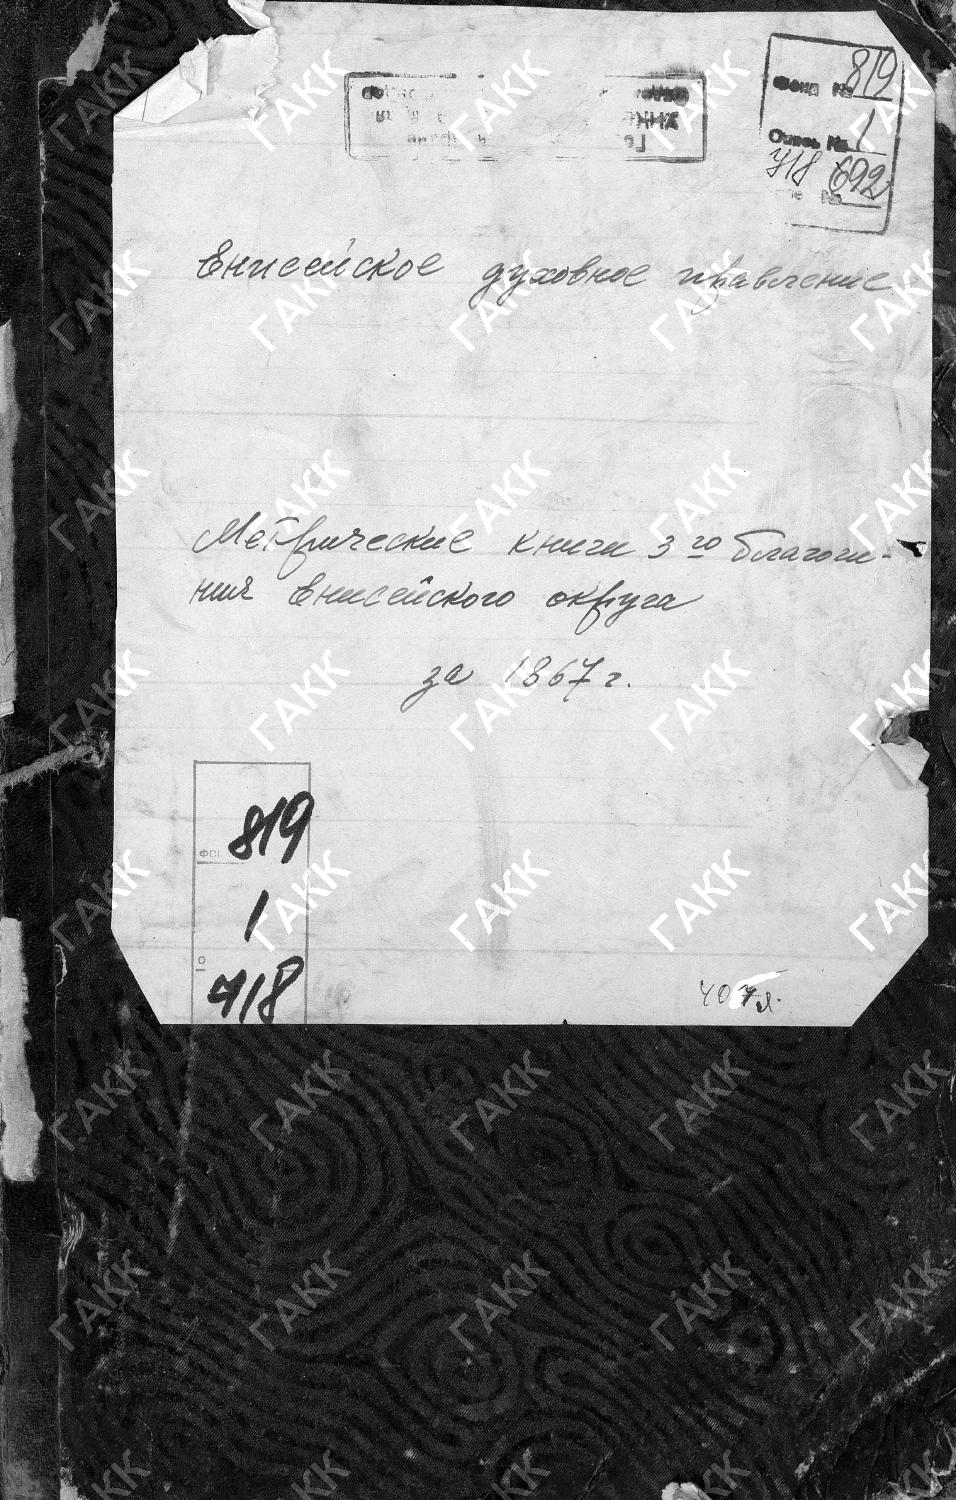 Фонд № 819
Опись № 1
718 692
№
Енисейское духовное правление
Метрические книги 3го благочи-
ния Енисейского округа
за 1867 г.
819
1
718
407 л.
ГАКК